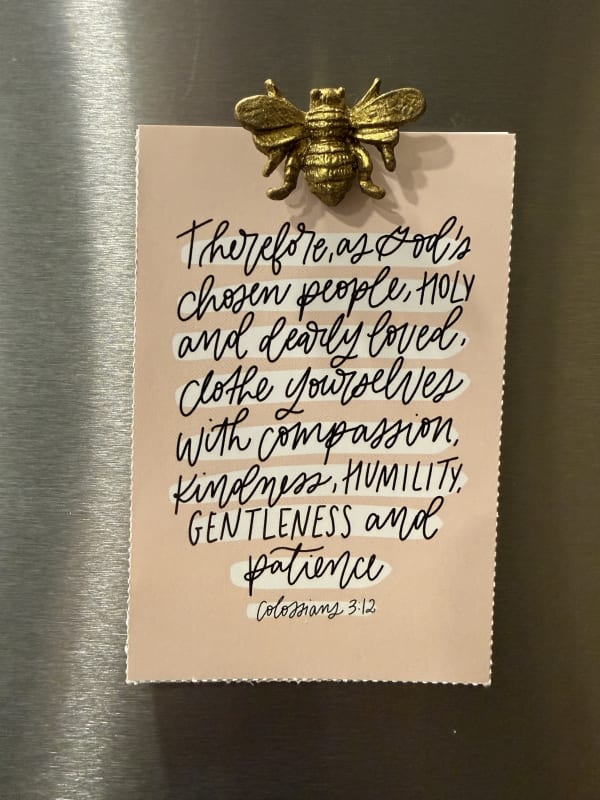 Therefore, as God's
chosen people, HOLY
and dearly loved,
clothe yourselves
with compassion,
kindness, HUMILITY,
GENTLENESS and
patience
Colossians 3:12